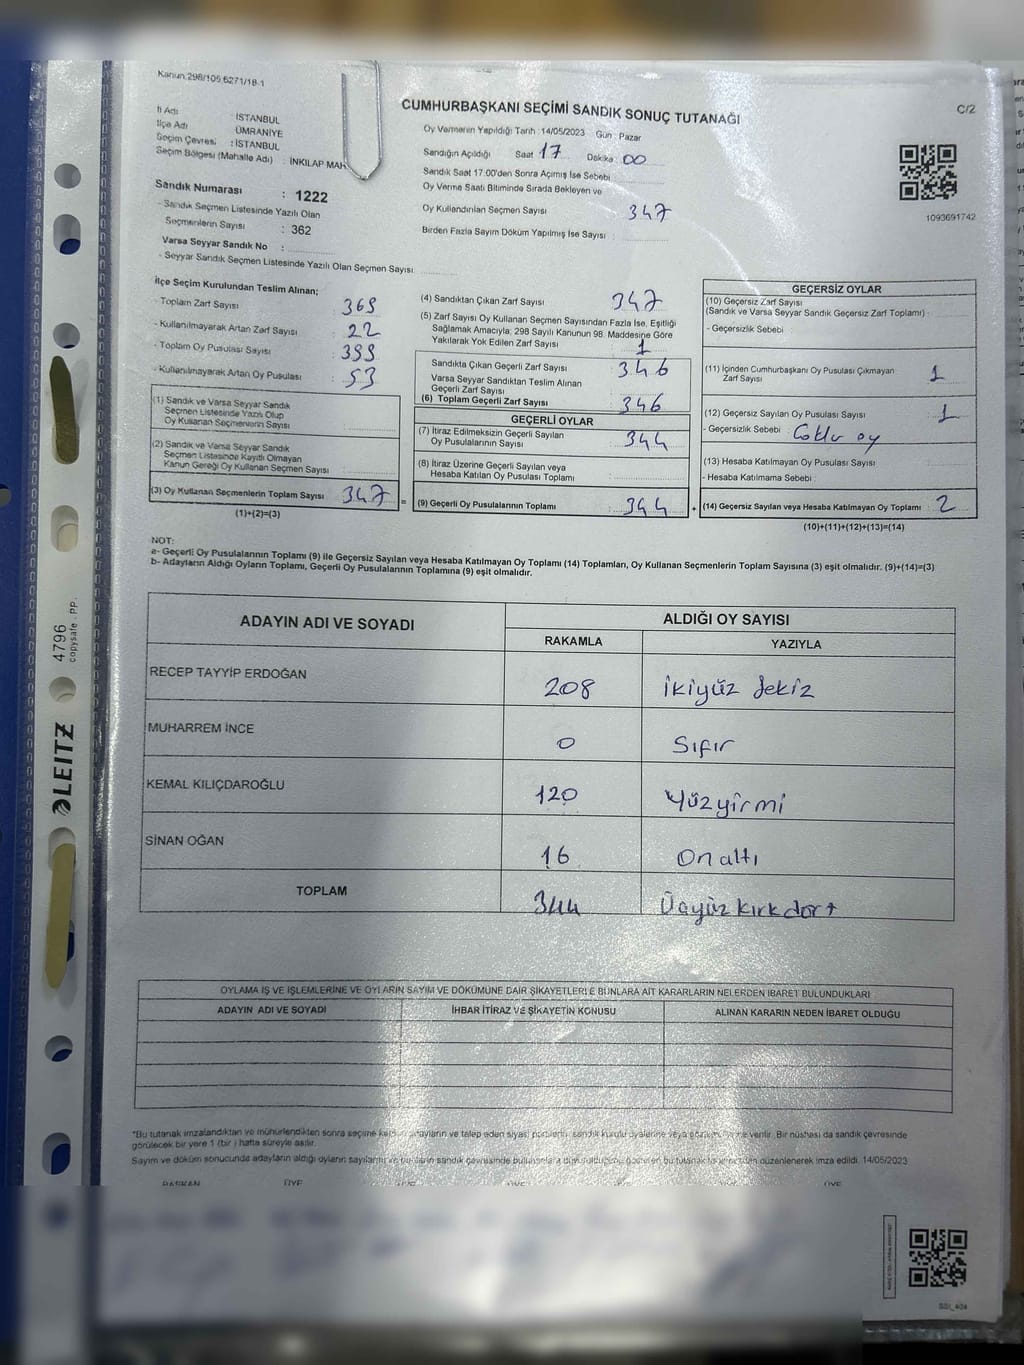 Kanun.298/105,6271/18-1
CUMHURBAŞKANI SEÇİMİ SANDIK SONUÇ TUTANAĞI
C/2
İl Adı : İSTANBUL
İlçe Adı : ÜMRANİYE
Seçim Çevresi : İSTANBUL
Seçim Bölgesi (Mahalle Adı) : İNKILAP MAH
Oy Vermenin Yapıldığı Tarih :14/05/2023 Gün : Pazar
Sandığın Açıldığı Saat : 17 Dakika : 00
Sandık Saat 17:00'den Sonra Açılmış İse Sebebi :
Oy Verme Saati Bitiminde Sırada Bekleyen ve
Oy Kullandırılan Seçmen Sayısı : 347
Birden Fazla Sayım Döküm Yapılmış İse Sayısı :
1093691742
Sandık Numarası : 1222
- Sandık Seçmen Listesinde Yazılı Olan
Seçmenlerin Sayısı : 362
Varsa Seyyar Sandık No :
- Seyyar Sandık Seçmen Listesinde Yazılı Olan Seçmen Sayısı:
İlçe Seçim Kurulundan Teslim Alınan;
- Toplam Zarf Sayısı : 369
- Kullanılmayarak Artan Zarf Sayısı : 22
- Toplam Oy Pusulası Sayısı : 399
- Kullanılmayarak Artan Oy Pusulası : 53
(1) Sandık ve Varsa Seyyar Sandık
Seçmen Listesinde Yazılı Olup
Oy Kullanan Seçmenlerin Sayısı :
(2) Sandık ve Varsa Seyyar Sandık
Seçmen Listesinde Kayıtlı Olmayan
Kanun Gereği Oy Kullanan Seçmen Sayısı :
(3) Oy Kullanan Seçmenlerin Toplam Sayısı : 347
(1)+(2)=(3)
(4) Sandıktan Çıkan Zarf Sayısı : 347
(5) Zarf Sayısı Oy Kullanan Seçmen Sayısından Fazla İse, Eşitliği
Sağlamak Amacıyla; 298 Sayılı Kanunun 98. Maddesine Göre
Yakılarak Yok Edilen Zarf Sayısı : 1
Sandıkta Çıkan Geçerli Zarf Sayısı : 346
Varsa Seyyar Sandıktan Teslim Alınan
Geçerli Zarf Sayısı :
(6) Toplam Geçerli Zarf Sayısı : 346
GEÇERLİ OYLAR
(7) İtiraz Edilmeksizin Geçerli Sayılan
Oy Pusulalarının Sayısı : 344
(8) İtiraz Üzerine Geçerli Sayılan veya
Hesaba Katılan Oy Pusulası Toplamı :
= (9) Geçerli Oy Pusulalarının Toplamı : 344
GEÇERSİZ OYLAR
(10) Geçersiz Zarf Sayısı
(Sandık ve Varsa Seyyar Sandık Geçersiz Zarf Toplamı) :
- Geçersizlik Sebebi :
(11) İçinden Cumhurbaşkanı Oy Pusulası Çıkmayan
Zarf Sayısı : 1
(12) Geçersiz Sayılan Oy Pusulası Sayısı : 1
- Geçersizlik Sebebi : Çoklu oy
(13) Hesaba Katılmayan Oy Pusulası Sayısı :
- Hesaba Katılmama Sebebi :
+ (14) Geçersiz Sayılan veya Hesaba Katılmayan Oy Toplamı : 2
(10)+(11)+(12)+(13)=(14)
NOT:
a- Geçerli Oy Pusulalarının Toplamı (9) ile Geçersiz Sayılan veya Hesaba Katılmayan Oy Toplamı (14) Toplamları, Oy Kullanan Seçmenlerin Toplam Sayısına (3) eşit olmalıdır. (9)+(14)=(3)
b- Adayların Aldığı Oyların Toplamı, Geçerli Oy Pusulalarının Toplamına (9) eşit olmalıdır.
ADAYIN ADI VE SOYADI ALDIĞI OY SAYISI
RAKAMLA YAZIYLA
RECEP TAYYİP ERDOĞAN 208 ikiyüz sekiz
MUHARREM İNCE 0 Sıfır
KEMAL KILIÇDAROĞLU 120 Yüzyirmi
SİNAN OĞAN 16 Onaltı
TOPLAM 344 Üçyüzkırkdört
OYLAMA İŞ VE İŞLEMLERİNE VE OYLARIN SAYIM VE DÖKÜMÜNE DAİR ŞİKAYETLERLE BUNLARA AİT KARARLARIN NELERDEN İBARET BULUNDUKLARI
ADAYIN ADI VE SOYADI İHBAR İTİRAZ VE ŞİKAYETİN KONUSU ALINAN KARARIN NEDEN İBARET OLDUĞU
*Bu tutanak imzalandıktan ve mühürlendikten sonra seçime adayların ve talep eden siyasi partilerin sandık kurulu üyelerine veya verilir. Bir nüshası da sandık çevresinde
görülecek bir yere 1 (bir) hafta süreyle asılır.
Sayım ve döküm sonucunda adayların aldığı oyların sayıları sandık çevresinde bu tutanak düzenlenerek imza edildi. 14/05/2023
BAŞKAN ÜYE ÜYE ÜYE
LEITZ
4796
copysafe . PP.
SSI_404